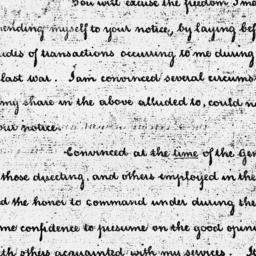 You will excuse the freedom I ma
mending myself to your notice, by laying bef
udes of transactions occuring to me during
last war. I am convinced several circums
my share in the above alluded to, could n
our notice.
Convinced at the time of the Gen
those directing, and others employed in the
d the honor to command under during the
me confidence to presume on the good opin
th others acquainted with my services.